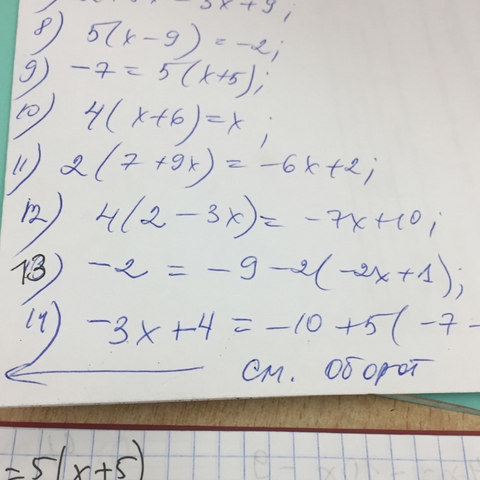 - 3x + 9;
8) 5(x - 9) = -2;
9) -7 = 5(x+5);
10) 4(x+6) = x;
11) 2(7 + 9x) = -6x + 2;
12) 4(2 - 3x) = -7x + 10;
13) -2 = -9 - 2(-2x + 1);
14) -3x + 4 = -10 + 5(-7 -
см. оборот
= 5(x+5)